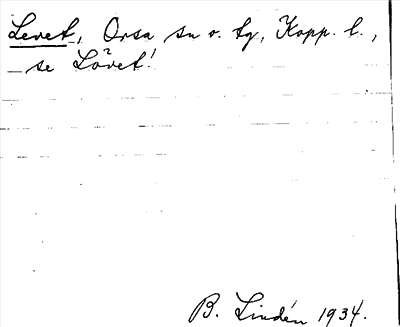 Levet, Orsa sn o. tg, Kopp. l.,
se Lövet!
B. Lindén 1934.